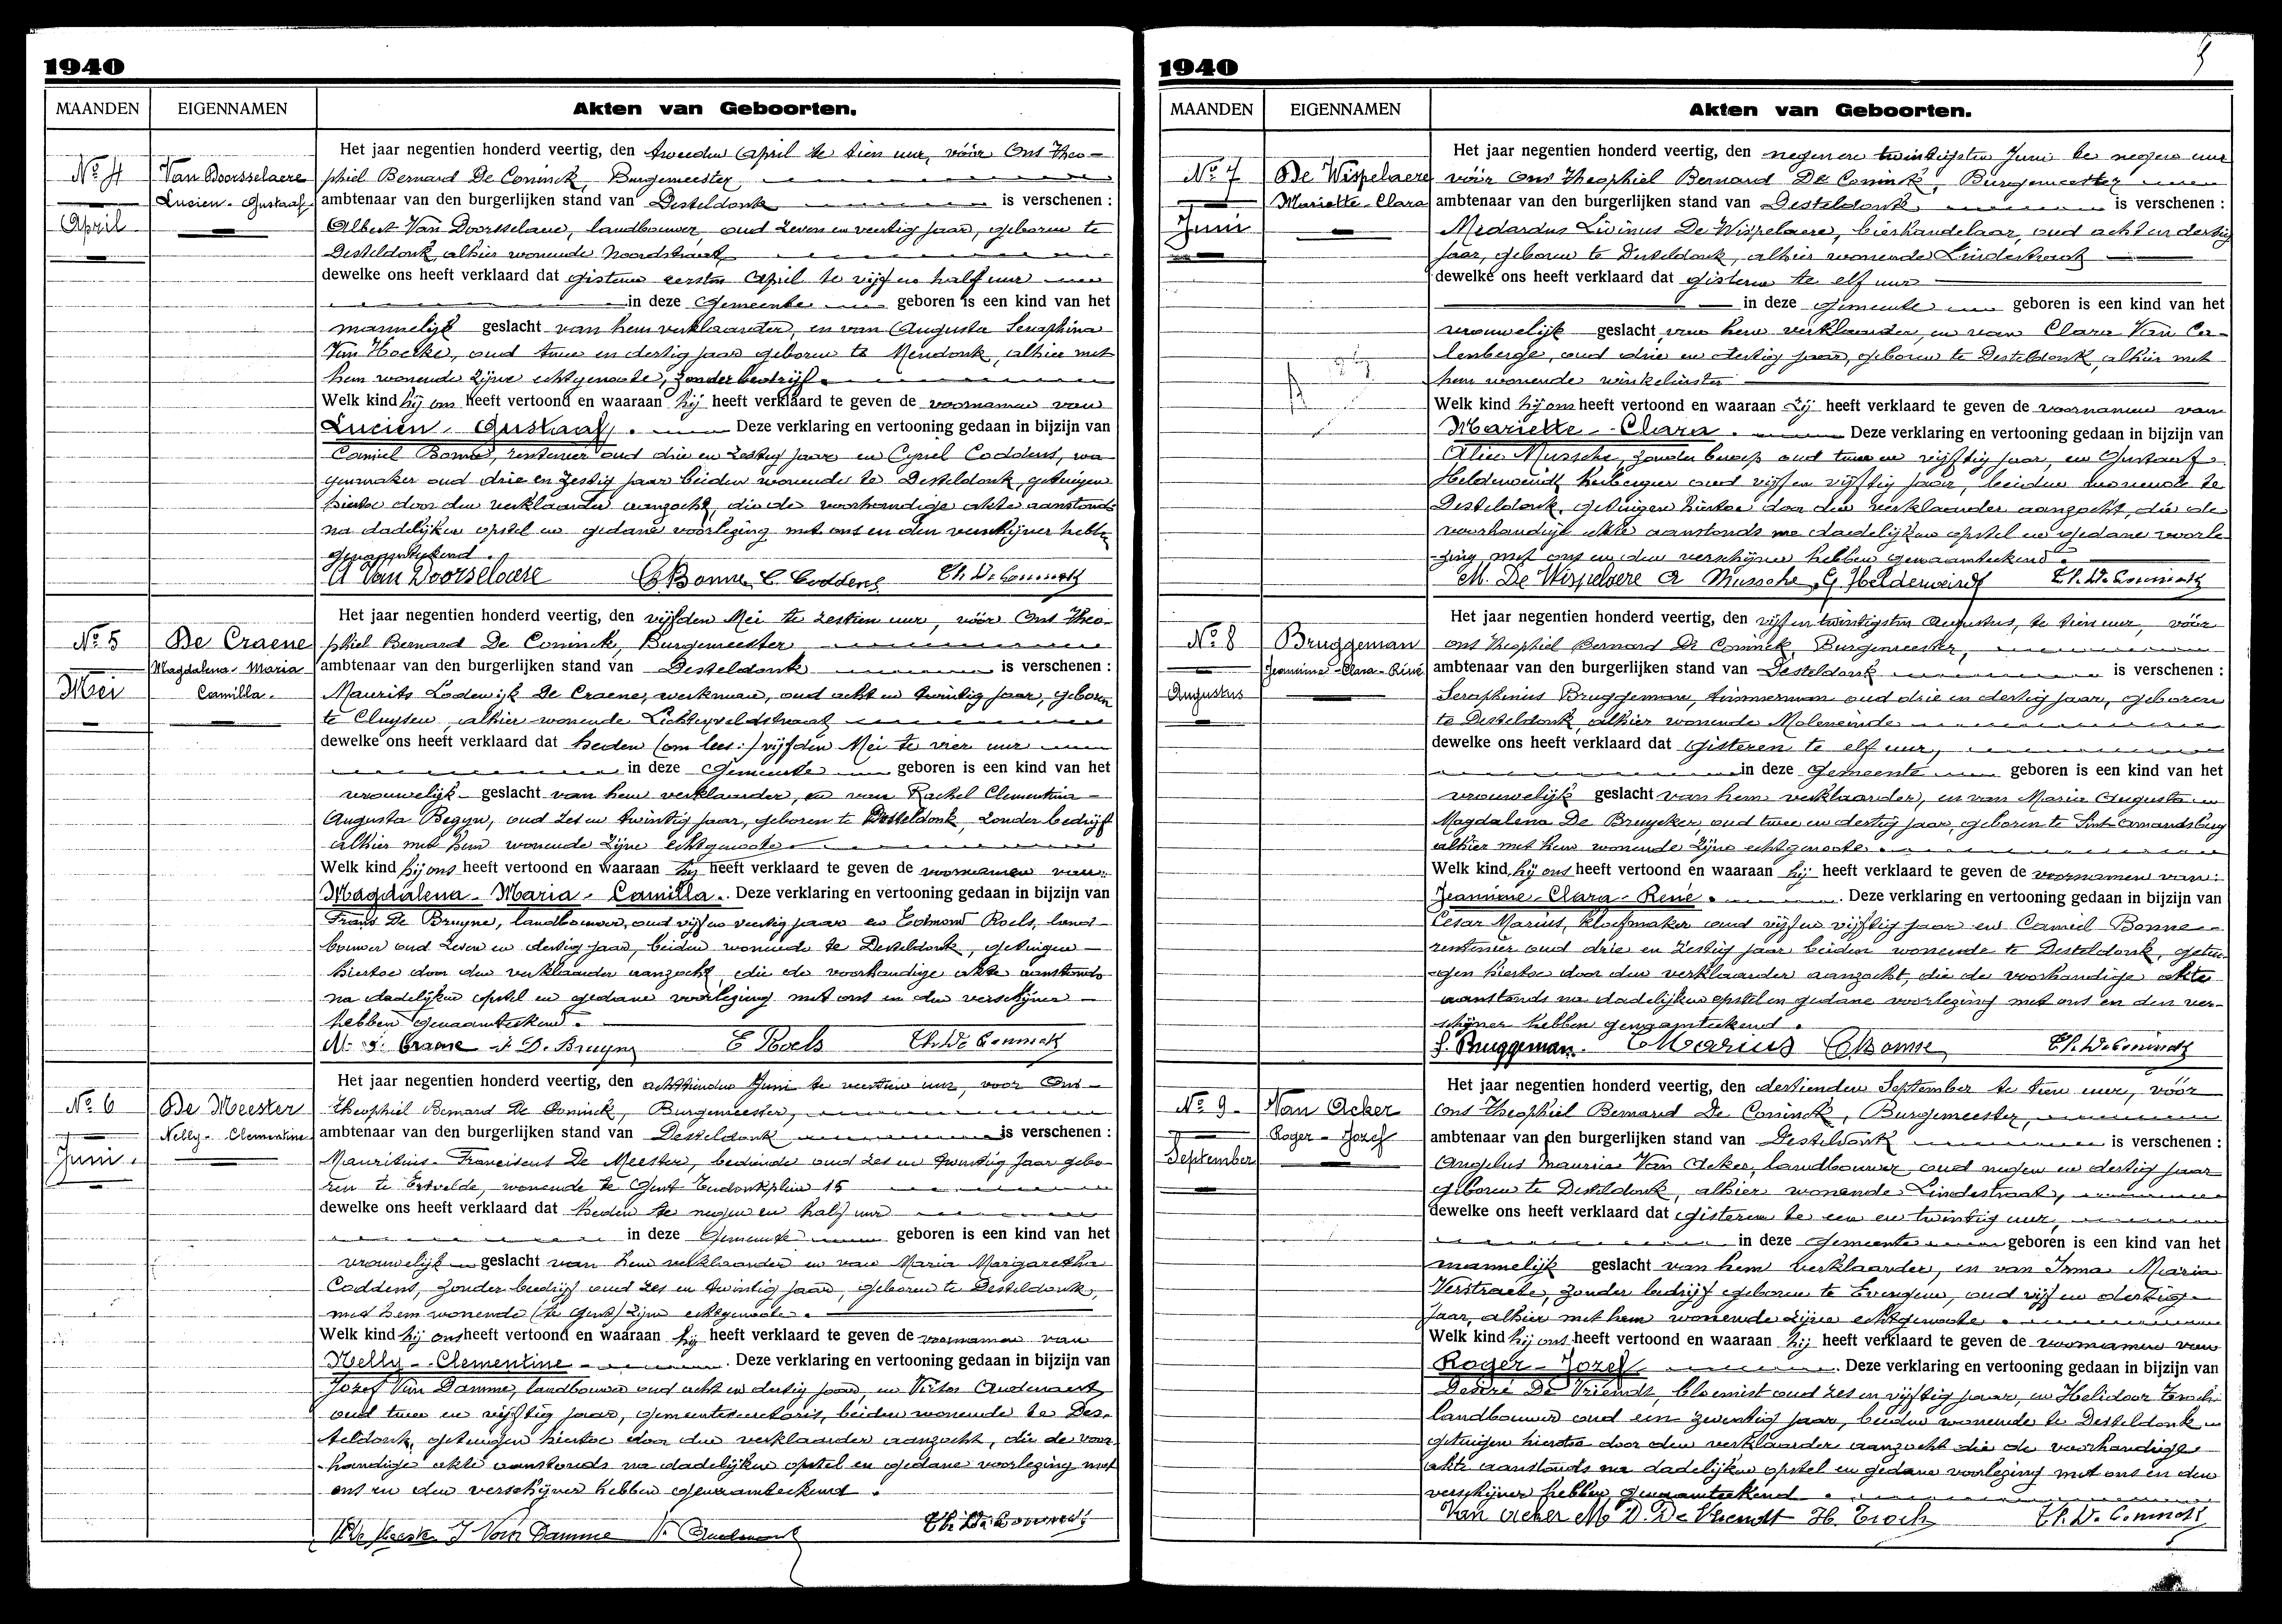 1940
MAANDEN EIGENNAMEN Akten van Geboorten.
No 4
April
Van Doorsselaere
Lucien - Gustaaf
Het jaar negentien honderd veertig, den tweeden April te tien uur, vóór Ons Theo-
phiel Bernard De Coninck, Burgemeester
ambtenaar van den burgerlijken stand van Desteldonk is verschenen :
Albert Van Doorselaere, landbouwer, oud zeven en veertig jaar, geboren te
Desteldonk, alhier wonende Noordstraat
dewelke ons heeft verklaard dat gisteren eersten April te vijf en half uur
in deze Gemeente geboren is een kind van het
mannelijk geslacht van hem verklaarder, en van Augusta Seraphina
Van Hoecke, oud twee en dertig jaar geboren te Mendonk, alhier met
hem wonende zijne echtgenoote, zonder bedrijf
Welk kind hij ons heeft vertoond en waaraan hij heeft verklaard te geven de voornamen van
Lucien - Gustaaf. Deze verklaring en vertooning gedaan in bijzijn van
Camiel Bonne, rentenier oud drie en zestig jaar en Cyriel Coddens, wa-
genmaker oud drie en zestig jaar beiden wonende te Desteldonk, getuigen
hiertoe door den verklaarder aanzocht, die de voorhandige akte aanstonds
na dadelijken opstel en gedane voorlezing met ons en den verschijner hebben
genaamteekend.
A Van Doorselaere C Bonne C. Coddens Th. De Coninck
No 5
Mei
De Craene
Magdalena - Maria
Camilla.
Het jaar negentien honderd veertig, den vijfden Mei te zestien uur, vóór Ons Theo-
phiel Bernard De Coninck, Burgemeester
ambtenaar van den burgerlijken stand van Desteldonk is verschenen :
Maurits Lodewijk De Craene, werkman, oud acht en twintig jaar, geboren
te Cluysen, alhier wonende Lichterveldstraat
dewelke ons heeft verklaard dat heden (om lees:) vijfden Mei te vier uur
in deze Gemeente geboren is een kind van het
vrouwelijk geslacht van hem verklaarder, en van Rachel Clementina
Augusta Begyn, oud zes en twintig jaar, geboren te Desteldonk, zonder bedrijf
alhier met hem wonende zijne echtgenoote
Welk kind hij ons heeft vertoond en waaraan hij heeft verklaard te geven de voornamen van:
Magdalena - Maria - Camilla. Deze verklaring en vertooning gedaan in bijzijn van
Frans De Bruyne, landbouwer, oud vijf en veertig jaar en Edmond Roels, land-
bouwer oud zeven en dertig jaar, beiden wonende te Desteldonk, getuigen
hiertoe door den verklaarder aanzocht, die de voorhandige akte aanstonds
na dadelijken opstel en gedane voorlezing met ons en den verschijner
hebben genaamteekend.
Craene F D. Bruyne E Roels Th. De Coninck
No 6
Juni.
De Meester
Nelly - Clementine
Het jaar negentien honderd veertig, den achttienden Juni te veertien uur, voor Ons
Theophiel Bernard De Coninck, Burgemeester,
ambtenaar van den burgerlijken stand van Desteldonk is verschenen :
Mauritius Franciscus De Meester, bediende oud zes en twintig jaar gebo-
ren te Ertvelde, wonende te Gent 15
dewelke ons heeft verklaard dat heden te negen en half uur
in deze Gemeente geboren is een kind van het
vrouwelijk geslacht van hem verklaarder en van Maria Margaretha
Coddens, zonder bedrijf oud zes en twintig jaar, geboren te Desteldonk,
met hem wonende (te Gent) zijne echtgenoote.
Welk kind hij ons heeft vertoond en waaraan hij heeft verklaard te geven de voornamen van
Nelly - Clementine Deze verklaring en vertooning gedaan in bijzijn van
Jozef Van Damme, landbouwer oud acht en dertig jaar, en Victor Audenaert
oud twee en vijftig jaar, gemeentesecretaris, beiden wonende te Des-
teldonk, getuigen hiertoe door den verklaarder aanzocht, die de voor-
handige akte aanstonds na dadelijken opstel en gedane voorlezing met
ons en den verschijner hebben genaamteekend.
J Van Damme V. Audenaert Th. De Coninck
1940
MAANDEN EIGENNAMEN Akten van Geboorten.
No 7
Juni
De Wispelaere
Mariette - Clara
Het jaar negentien honderd veertig, den negenen twintigsten Juni te negen uur
vóór Ons Theophiel Bernard De Coninck, Burgemeester
ambtenaar van den burgerlijken stand van Desteldonk is verschenen :
Medardus Livinus De Wispelaere, bierhandelaar, oud acht en dertig
jaar, geboren te Desteldonk, alhier wonende Lindestraat
dewelke ons heeft verklaard dat gisteren te elf uur
in deze Gemeente geboren is een kind van het
vrouwelijk geslacht van hem verklaarder, en van Clara Van Ca-
lenberge, oud drie en dertig jaar, geboren te Desteldonk, alhier met
hem wonende winkelierster
Welk kind hij ons heeft vertoond en waaraan zij heeft verklaard te geven de voornamen van
Mariette - Clara. Deze verklaring en vertooning gedaan in bijzijn van
Mussche, zonder beroep oud twee en vijftig jaar, en Gustaaf
Helderweirdt herbergier oud vijf en vijftig jaar, beiden wonende te
Desteldonk, getuigen hiertoe door den verklaarder aanzocht, die de
voorhandige akte aanstonds na dadelijken opstel en gedane voorle-
zing met ons en den verschijner hebben genaamteekend.
M. De Wispelaere A Mussche G Helderweirdt Th. De Coninck
No 8
Augustus
Bruggeman
Jeannine - Clara - Réné
Het jaar negentien honderd veertig, den vijf en twintigsten Augustus, te tien uur, vóór
ons Theophiel Bernard De Coninck, Burgemeester,
ambtenaar van den burgerlijken stand van Desteldonk is verschenen :
Seraphinus Bruggeman, timmerman oud drie en dertig jaar, geboren
te Desteldonk, alhier wonende Moleneinde
dewelke ons heeft verklaard dat Gisteren te elf uur,
in deze Gemeente geboren is een kind van het
vrouwelijk geslacht van hem verklaarder, en van Maria Augusta
Magdalena De Bruycker, oud twee en dertig jaar, geboren te Sint-Amandsberg
alhier met hem wonende zijne echtgenoote.
Welk kind hij ons heeft vertoond en waaraan hij heeft verklaard te geven de voornamen van:
Jeannine - Clara - René. Deze verklaring en vertooning gedaan in bijzijn van
Cesar Marius, kloefmaker oud vijf en vijftig jaar en Camiel Bonne
rentenier oud drie en zestig jaar beiden wonende te Desteldonk, getui-
gen hiertoe door den verklaarder aanzocht, die de voorhandige akte
aanstonds na dadelijken opstel en gedane voorlezing met ons en den ver-
schijner hebben genaamteekend.
S. Bruggeman. C Marius C Bonne Th. De Coninck
No 9
September
Van Acker
Roger - Jozef
Het jaar negentien honderd veertig, den dertienden September te tien uur, vóór
Ons Theophiel Bernard De Coninck, Burgemeester,
ambtenaar van den burgerlijken stand van Desteldonk is verschenen :
Angelus Maurice Van Acker, landbouwer, oud negen en dertig jaar
geboren te Desteldonk, alhier wonende Lindestraat,
dewelke ons heeft verklaard dat Gisteren te een en twintig uur,
in deze Gemeente geboren is een kind van het
mannelijk geslacht van hem verklaarder, en van Irma Maria
Verstraete, zonder bedrijf geboren te Evergem, oud vijf en dertig
jaar, alhier met hem wonende zijne echtgenoote.
Welk kind hij ons heeft vertoond en waaraan hij heeft verklaard te geven de voornamen van
Roger - Jozef Deze verklaring en vertooning gedaan in bijzijn van
Desiré De Vriendt, bloemist oud zes en vijftig jaar, en Helidoor Troch
landbouwer oud een zeventig jaar, beiden wonende te Desteldonk
getuigen hiertoe door den verklaarder aanzocht die de voorhandige
akte aanstonds na dadelijken opstel en gedane voorlezing met ons en den
verschijner hebben genaamteekend.
Van Acker M D. De Vriendt H. Troch Th. De Coninck